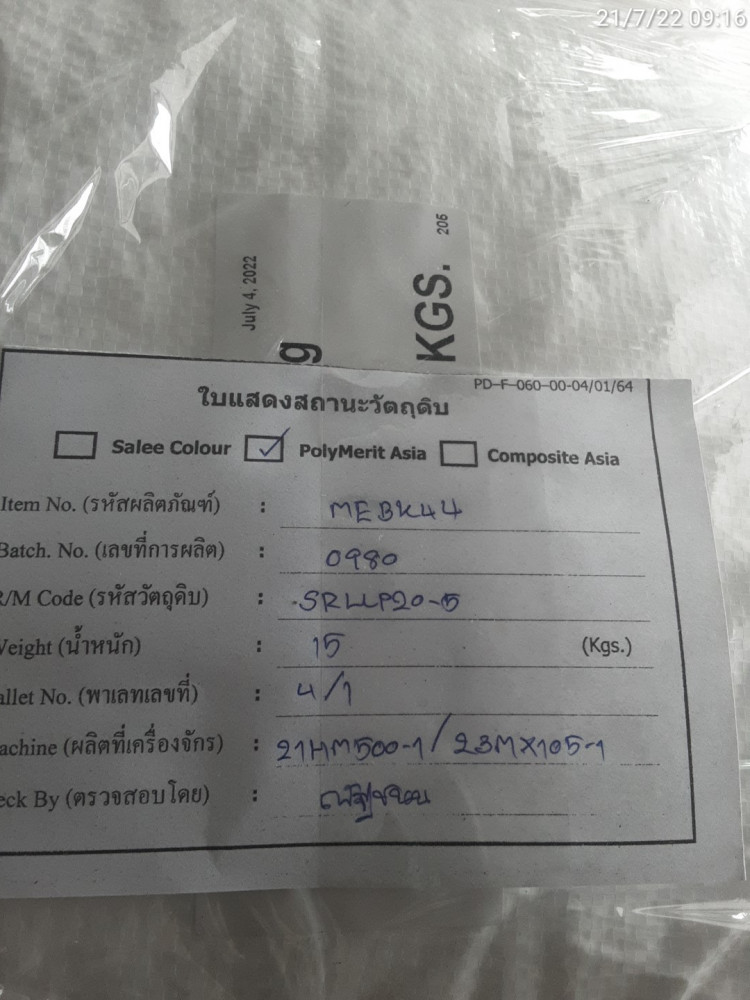 21/7/22 09:16
July 4, 2022
g
KGS.
206
PD-F-060-00-04/01/64
ใบแสดงสถานะวัตถุดิบ
Salee Colour PolyMerit Asia Composite Asia
Item No. (รหัสผลิตภัณฑ์) : MEBK44
Batch. No. (เลขที่การผลิต) : 0980
R/M Code (รหัสวัตถุดิบ) : SRLLP20-5
Weight (น้ำหนัก) : 15 (Kgs.)
allet No. (พาเลทเลขที่) : 4/1
achine (ผลิตที่เครื่องจักร) : 21HM500-1/23MX105-1
eck By (ตรวจสอบโดย) :